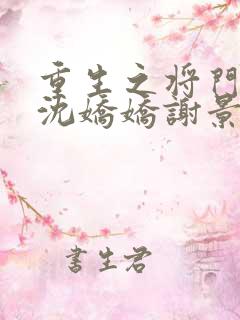 重生之将门
沈嬌嬌謝景
書生君